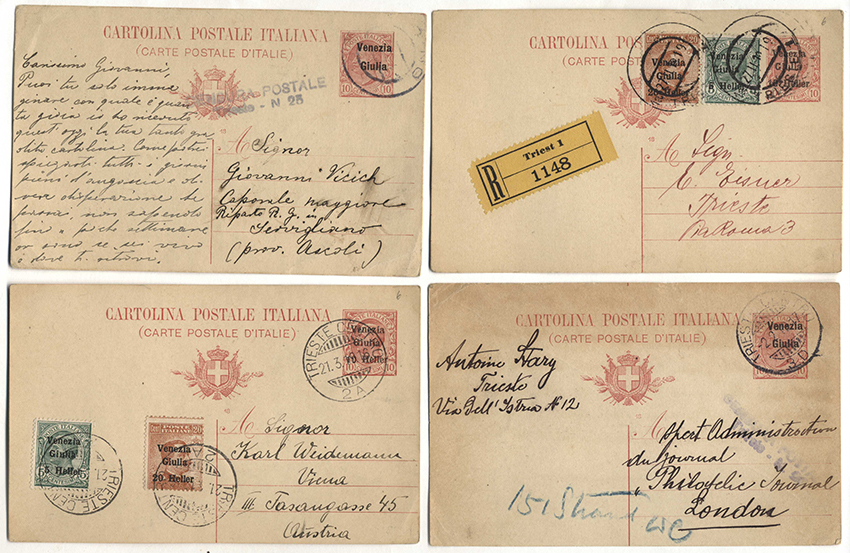 CARTOLINA POSTALE ITALIANA
(CARTE POSTALE D'ITALIE)
Venezia
Giulia
10 10
POSTALE
N 25
Carissimo Giovanni,
Puoi tu solo imma
ginare con quale e quan
ta gioia io ho ricevuto
quest'oggi la tua tanto gra
dita cartolina. Come potrei
spiegarti tutti i giorni
pieni d'angoscia e di
vera disperazione che
passai, non sapendo
fin a poche settimane
or sono se sei vivo
e dove ti trovi.
A Signor
Giovanni Vicich
Caporale maggiore
Riparto R. G. in
Servigliano
(prov. Ascoli)
CARTOLINA POSTALE ITALIANA
(CARTE POSTALE D'ITALIE)
Venezia
Giulia
20 Heller
Venezia
Giulia
5 Heller
Giulia
10 Heller
R
Triest 1
1148
A Sign.
E. Eisner
Trieste
Via Roma 3
6
CARTOLINA POSTALE ITALIANA
(CARTE POSTALE D'ITALIE)
Venezia
Giulia
10 Heller
TRIESTE CENTRO
21.3.19.16
2A
Venezia
Giulia
5 Heller
Venezia
Giulia
20 Heller
TRIESTE CENTRO
TRIESTE CENTRO
A Signor
Karl Weidemann
Viena
III Fasangasse 45
Austria
6
CARTOLINA POSTALE ITALIANA
(CARTE POSTALE D'ITALIE)
Venezia
Giulia
10
3D
Antoine Stary
Trieste
Via Dell' Istria № 12
A
Administraction
du Journal
"Philatelic Journal"
London
151 Strand WC